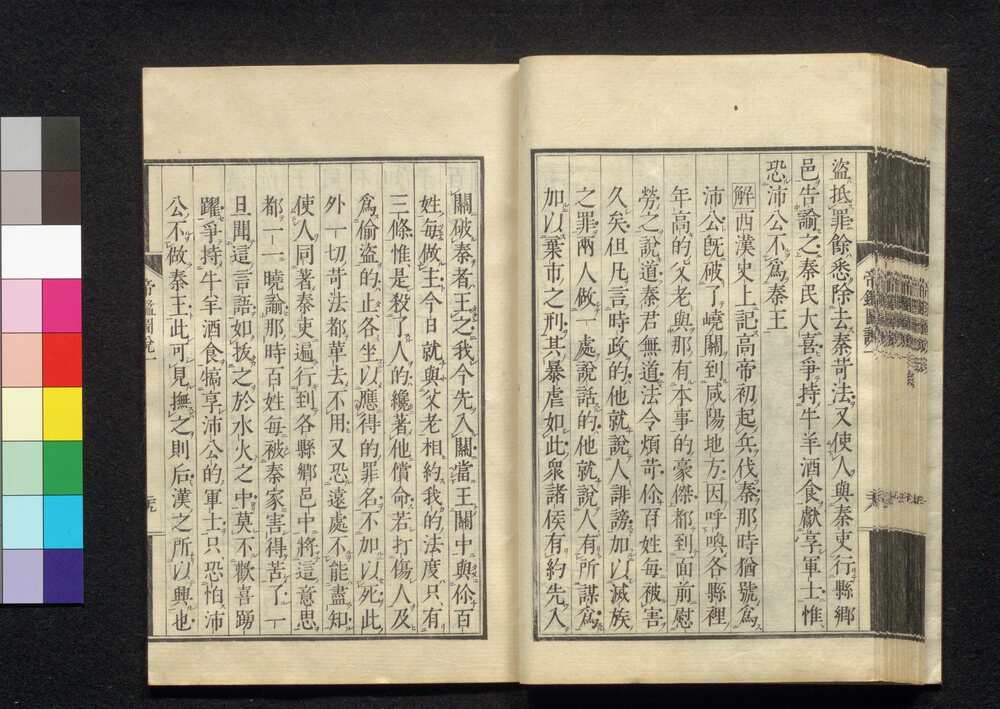 盜抵罪餘悉除去秦苛法又使人與秦吏行縣鄉
邑告諭之秦民大喜爭持牛羊酒食獻享軍士惟
恐沛公不爲秦王
解西漢史上記高帝初起兵伐秦那時猶號爲
沛公既破了嶢關到咸陽地方因呼喚各縣裡
年高的父老與那有本事的豪傑都到面前慰
勞之說道秦君無道法令煩苛你百姓每被害
久矣但凡言時政的他就說人誹謗加以滅族
之罪兩人做一處說話的他就說人有所謀爲
加以棄市之刑其暴虐如此衆諸侯有約先入
關破秦者王之我今先入關當王關中與你百
姓每做主今日就與父老相約我的法度只有
三條惟是殺了人的纔著他償命若打傷人及
爲偷盜的止各坐以應得的罪名不加以死此
外一切苛法都革去不用又恐遠處不能盡知
使人同著秦吏遍行到各縣鄉邑中將這意思
都一一曉諭那時百姓每被秦家害得苦了一
旦聞這言語如拔之於水火之中莫不歡喜踴
躍爭持牛羊酒食犒享沛公的軍士只恐怕沛
公不做秦王此可見撫之則后漢之所以興也
帝鑑圖說一